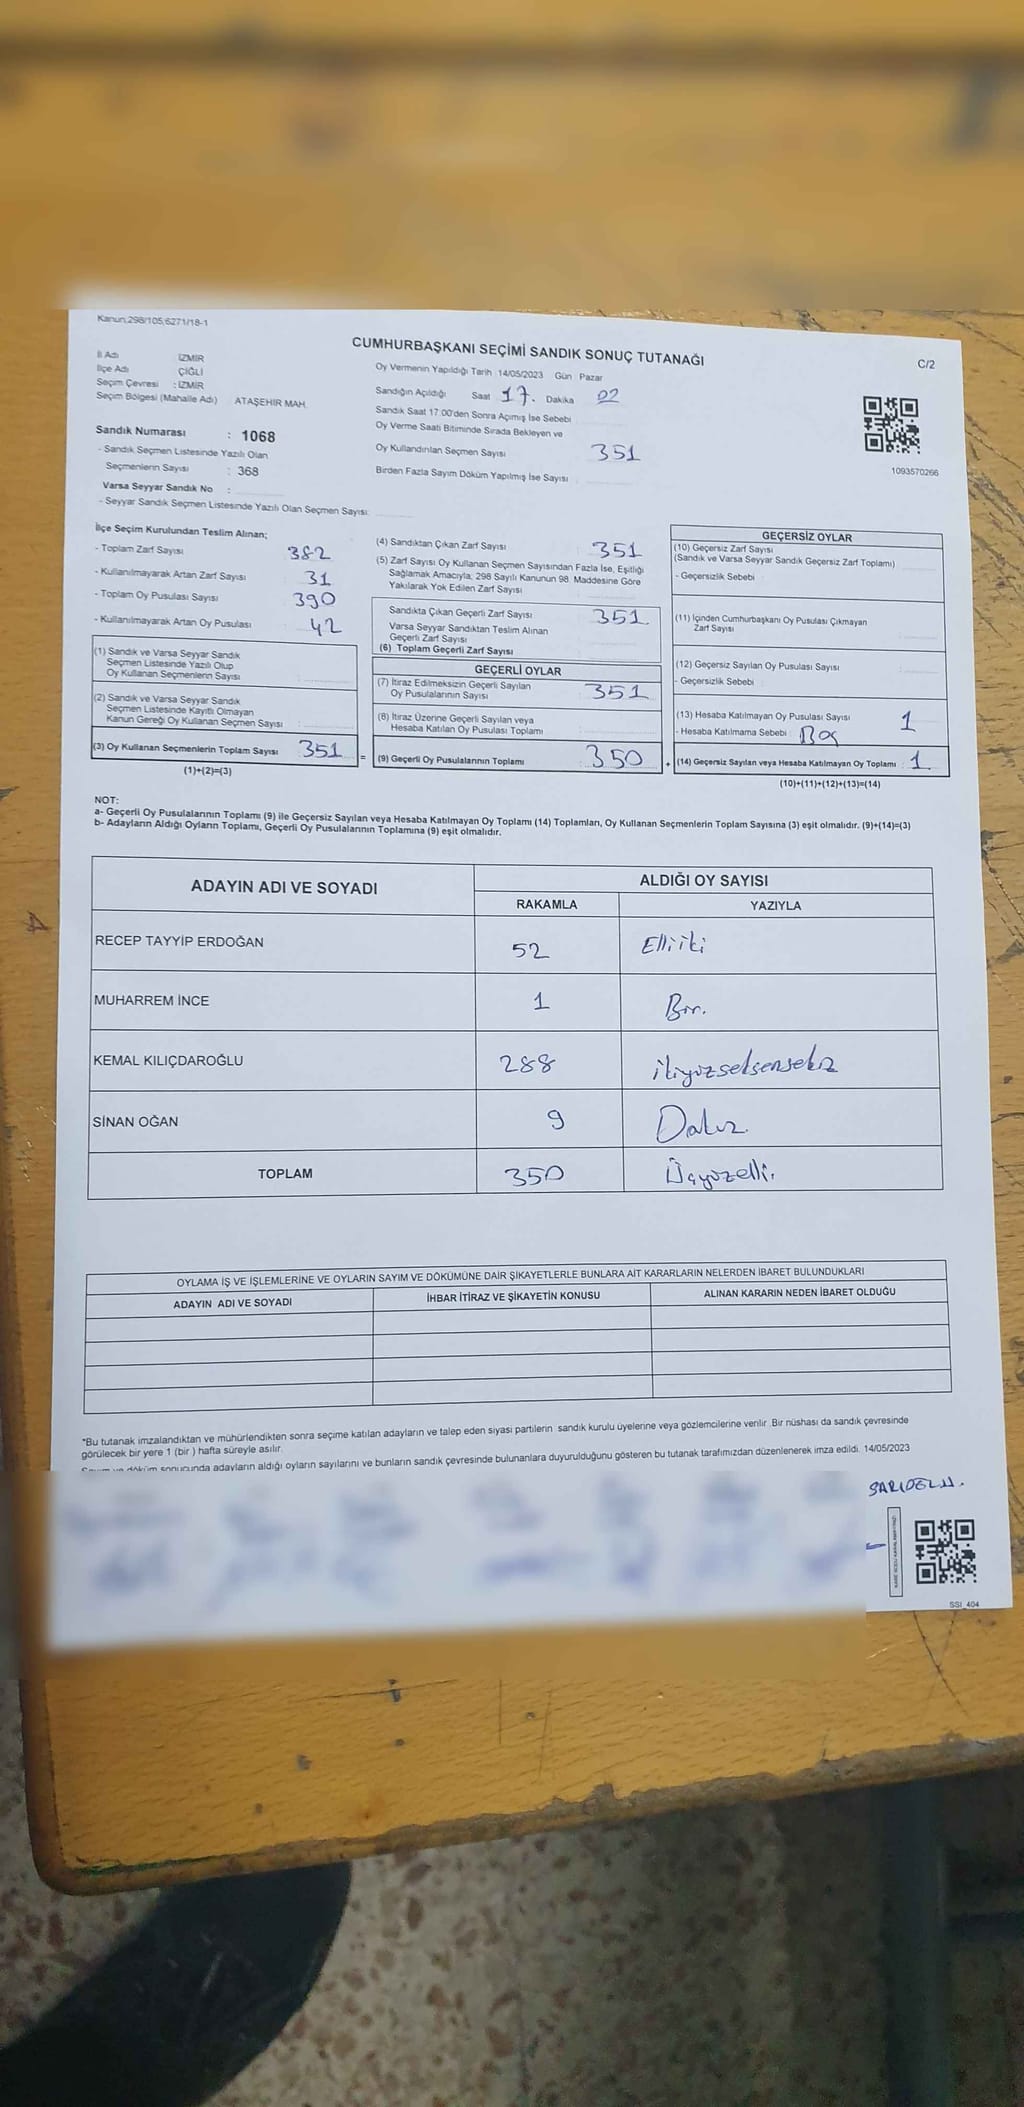 Kanun;298/105;6271/18-1
CUMHURBAŞKANI SEÇİMİ SANDIK SONUÇ TUTANAĞI
C/2
İl Adı İZMİR
İlçe Adı ÇİĞLİ
Seçim Çevresi : İZMİR
Seçim Bölgesi (Mahalle Adı) ATAŞEHİR MAH.
Sandık Numarası : 1068
- Sandık Seçmen Listesinde Yazılı Olan
Seçmenlerin Sayısı : 368
Varsa Seyyar Sandık No :
- Seyyar Sandık Seçmen Listesinde Yazılı Olan Seçmen Sayısı:
Oy Vermenin Yapıldığı Tarih :14/05/2023 Gün Pazar
Sandığın Açıldığı Saat 17. Dakika 02
Sandık Saat 17:00'den Sonra Açımış İse Sebebi
Oy Verme Saati Bitiminde Sırada Bekleyen ve
Oy Kullandırılan Seçmen Sayısı 351
Birden Fazla Sayım Döküm Yapılmış İse Sayısı
1093570266
İlçe Seçim Kurulundan Teslim Alınan;
- Toplam Zarf Sayısı 382
- Kullanılmayarak Artan Zarf Sayısı 31
- Toplam Oy Pusulası Sayısı 390
- Kullanılmayarak Artan Oy Pusulası 42
(1) Sandık ve Varsa Seyyar Sandık
Seçmen Listesinde Yazılı Olup
Oy Kullanan Seçmenlerin Sayısı
(2) Sandık ve Varsa Seyyar Sandık
Seçmen Listesinde Kayıtlı Olmayan
Kanun Gereği Oy Kullanan Seçmen Sayısı :
(3) Oy Kullanan Seçmenlerin Toplam Sayısı 351
(1)+(2)=(3)
=
(4) Sandıktan Çıkan Zarf Sayısı 351
(5) Zarf Sayısı Oy Kullanan Seçmen Sayısından Fazla İse, Eşitliği
Sağlamak Amacıyla; 298 Sayılı Kanunun 98. Maddesine Göre
Yakılarak Yok Edilen Zarf Sayısı
Sandıkta Çıkan Geçerli Zarf Sayısı 351
Varsa Seyyar Sandıktan Teslim Alınan
Geçerli Zarf Sayısı
(6) Toplam Geçerli Zarf Sayısı
GEÇERLİ OYLAR
(7) İtiraz Edilmeksizin Geçerli Sayılan
Oy Pusulalarının Sayısı 351
(8) İtiraz Üzerine Geçerli Sayılan veya
Hesaba Katılan Oy Pusulası Toplamı
(9) Geçerli Oy Pusulalarının Toplamı 350
+
GEÇERSİZ OYLAR
(10) Geçersiz Zarf Sayısı
(Sandık ve Varsa Seyyar Sandık Geçersiz Zarf Toplamı)
- Geçersizlik Sebebi :
(11) İçinden Cumhurbaşkanı Oy Pusulası Çıkmayan
Zarf Sayısı
(12) Geçersiz Sayılan Oy Pusulası Sayısı
- Geçersizlik Sebebi :
(13) Hesaba Katılmayan Oy Pusulası Sayısı 1
- Hesaba Katılmama Sebebi : Boş
(14) Geçersiz Sayılan veya Hesaba Katılmayan Oy Toplamı : 1
(10)+(11)+(12)+(13)=(14)
NOT:
a- Geçerli Oy Pusulalarının Toplamı (9) ile Geçersiz Sayılan veya Hesaba Katılmayan Oy Toplamı (14) Toplamları, Oy Kullanan Seçmenlerin Toplam Sayısına (3) eşit olmalıdır. (9)+(14)=(3)
b- Adayların Aldığı Oyların Toplamı, Geçerli Oy Pusulalarının Toplamına (9) eşit olmalıdır.
ADAYIN ADI VE SOYADI ALDIĞI OY SAYISI
RAKAMLA YAZIYLA
RECEP TAYYİP ERDOĞAN 52 Elliiki
MUHARREM İNCE 1 Bir.
KEMAL KILIÇDAROĞLU 288 ikiyüzseksensekiz
SİNAN OĞAN 9 Dokuz
TOPLAM 350 Üçyüzelli.
OYLAMA İŞ VE İŞLEMLERİNE VE OYLARIN SAYIM VE DÖKÜMÜNE DAİR ŞİKAYETLERLE BUNLARA AİT KARARLARIN NELERDEN İBARET BULUNDUKLARI
ADAYIN ADI VE SOYADI İHBAR İTİRAZ VE ŞİKAYETİN KONUSU ALINAN KARARIN NEDEN İBARET OLDUĞU
*Bu tutanak imzalandıktan ve mühürlendikten sonra seçime katılan adayların ve talep eden siyasi partilerin sandık kurulu üyelerine veya gözlemcilerine verilir .Bir nüshası da sandık çevresinde
görülecek bir yere 1 (bir ) hafta süreyle asılır.
Sayım ve döküm sonucunda adayların aldığı oyların sayılarını ve bunların sandık çevresinde bulunanlara duyurulduğunu gösteren bu tutanak tarafımızdan düzenlenerek imza edildi. 14/05/2023
SSI_404